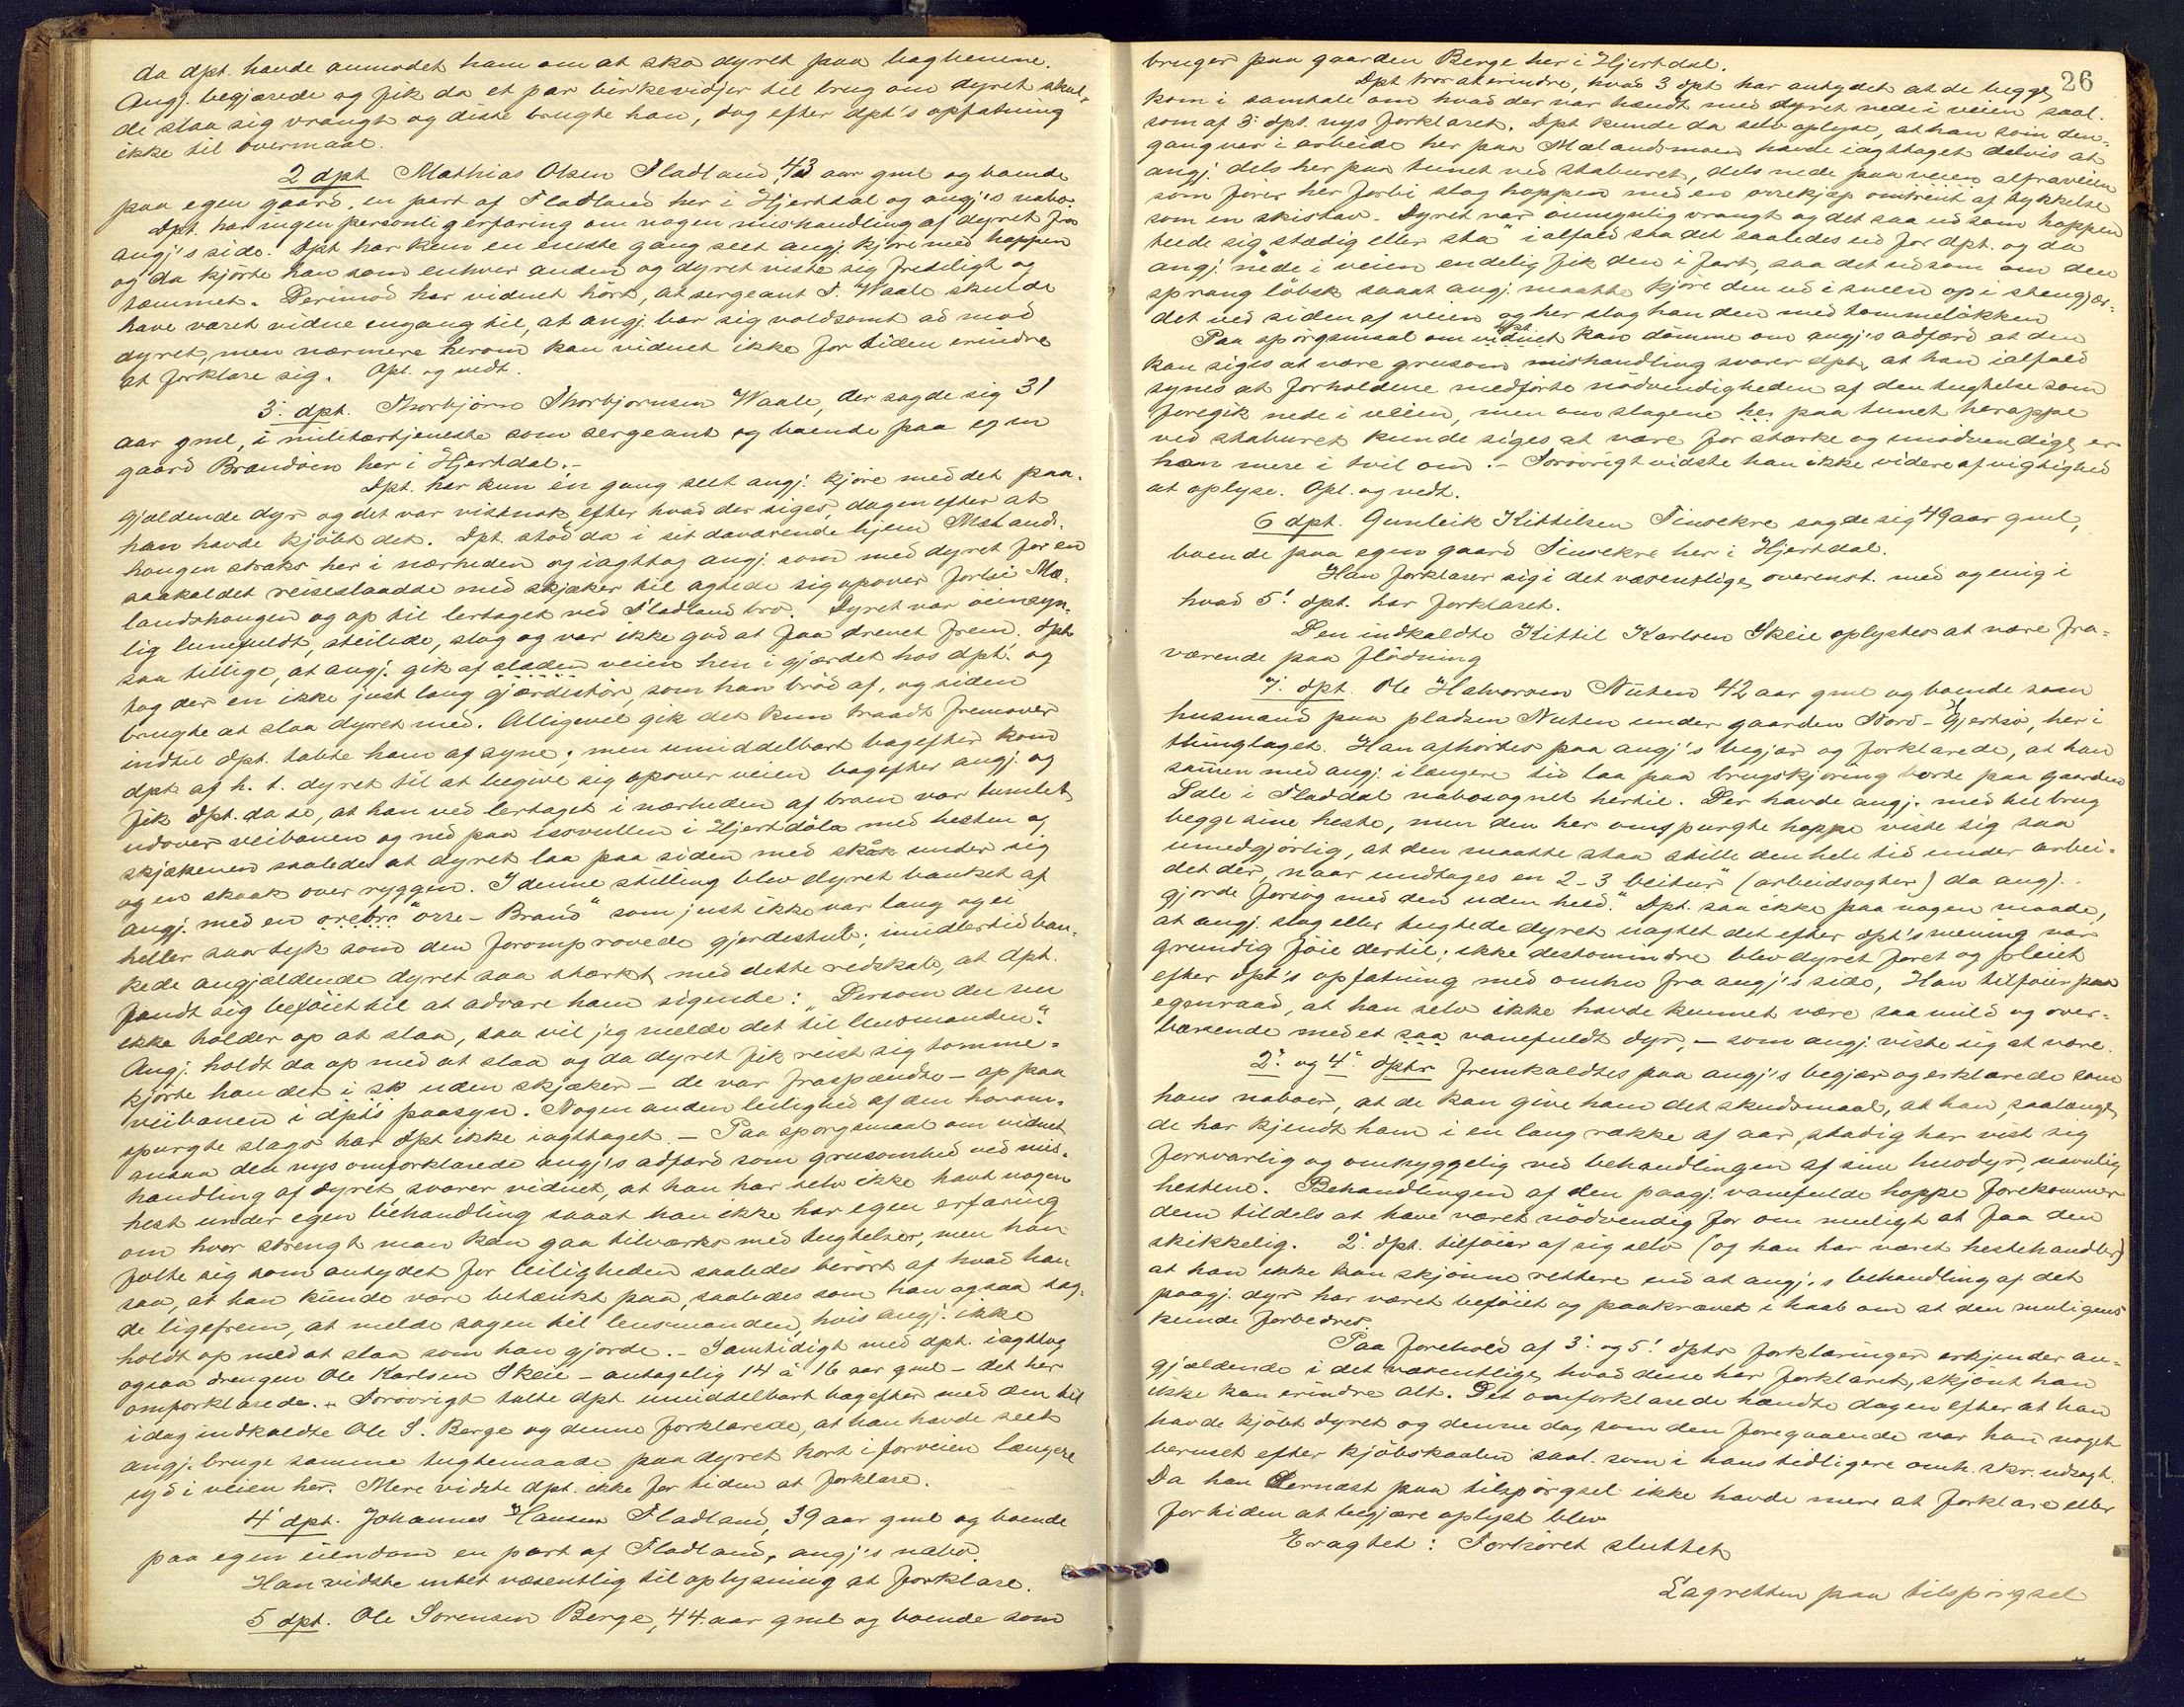 da dpt. havde anmodet ham om at sko dyret paa bagbenene.
Angj. begjærede og fik da et par birkevidjer til brug om dyret skul-
de slaa sig vrangt og disse brugte han, dog efter dpt's opfatning
ikke til overmaal.
2 dpt. Mathias Olsen Fladland, 43 aar gml og boende
paa egen gaard, en part af Fladland her i Hjertdal og angj's nabo.
Dpt. har ingen personlig erfaring om nogen mishandling af dyret fra
angj's side. Dpt har kun en eneste gang seet angj. kjøre med hoppen
og da kjørte han som enhver anden og dyret viste sig fredeligt og
tæmmet. Derimod har vidnet hørt, at sergeant T. Waale skulde
have været vidne engang til, at angj. bar sig voldsomt ad mod
dyret, men nærmere herom kan vidnet ikke for tiden erindre
at forklare sig. Opl. og vedt.
3: dpt. Thorbjørn Thorbjørnsen Waale, der sagde sig 31
aar gml, i militærtjeneste som sergeant og boende paa egen
gaard Brændøien her i Hjertdal.-
Dpt. har kun én gang seet angj. kjøre med det paa-
gjældende dyr og det var vistnok efter hvad der siges, dagen efter at
han havde kjøbt det. Dpt. stod da i sit daværende hjem Mælands-
haugen straks her i nærheden og iagttog angj. som med dyret for en
saakaldet reiseslaadde med skjæker til agtede sig opover forbi Mæ-
landshaugen og op til lertaget ved Fladland bro. Dyret var øiensyn-
lig lunefuldt, steilede, slog og var ikke god at faa drevet frem. Dpt
saa tillige, at angj. gik af sladen veien hen i gjærdet hos dpt. og
tog der en ikke just lang gjærdestør, som han brød af, og siden
brugte at slaa dyret med. Alligevel gik det kun traadt fremover
indtil dpt. tabte ham af syne; men umiddelbart bagefter kom
dpt af h. t. dyret til at begive sig opover veien bagefter angj. og
fik dpt. da se, at han ved lertaget i nærheden af broen var tumlet
udover veibanen og ned paa issvullen i Hjertdøla med hesten og
skjækerne saaledes at dyret laa paa siden med skåk under sig
og en skaak over ryggen. I denne stilling blev dyret banket af
angj. med en orebr "orre-Brand" som just ikke var lang og ei
heller saa tyk som den foromprovede gjerdestub; imidlertid ban-
kede angjældende dyret saa stærkt med dette redskab, at dpt.
fandt sig beføiet til at advare ham sigende: "Dersom du nu
ikke holder op at slaa, saa vil jeg melde det til lensmanden."
Angj. holdt da op med at slaa og da dyret fik reist sig tomme-
kjørte han det i sk uden skjæker - de var fraspændte - op paa
veibanen i dpt's paasyn. Nogen anden leilighed af den herom-
spurgte slags har dpt ikke iagttaget. - Paa spørgsmaal om vidnet
ansaa den nys omforklarede angj's adfærd som grusomhed ved mis-
handling af dyret, svarer vidnet, at han har selv ikke havt nogen
hest under egen behandling saaat han ikke har egen erfaring
om hvor strengt man kan gaa tilværks med tugtelser, men han
følte sig som antydet for leiligheden saaledes berørt af hvad han
saa, at han kunde være betænkt paa, saaledes som han ogsaa sag-
de ligefrem, at melde sagen til lensmanden, hvis angj. ikke
holdt op med at slaa som han gjorde. - Samtidigt med dpt. iagttog
ogsaa drengen Ole Karlsen Skeie - antagelig 14 à 16 aar gml - det her
omforklarede. - Forøvrigt talte dpt umiddelbart bagefter med den til
idag indkaldte Ole S. Berge og denne forklarede, at han havde seet
angj. bruge samme tugtemaade paa dyret kort i forveien længere
syd i veien her. Mere vidste dpt. ikke for tiden at forklare.
4' dpt. Johannes Hansen Fladland, 39 aar gml og boende
paa egen eiendom en part af Fladland, angj's nabo.
Han vidste intet væsentlig til oplysning at forklare.
5 dpt. Ole Sørensen Berge, 44 aar gml og boende som
26
bruger paa gaarden Berge her i Hjertdal.
Dpt tror at erindre, hvad 3 dpt har antydet at de begge
kom i samtale om hvad der var hændt med dyret nede i veien saal.
som af 3: dpt. nys forklaret. Dpt kunde da selv oplyse, at han som den-
gang var i arbeide her paa Mælandsmoen havde iagttaget delvis at
angj. dels her paa tunet ved staburet, dels nede paa veien alfraveien
som fører her forbi slog hoppen med en orrekjæp omtrent af tykkelse
som en skistav. Dyret var øiensynlig vrangt og det saa ud som hoppen
teede sig stædig eller "sta" i alfald saa det saaledes ud for dpt. og da
angj. nede i veien endelig fik den i fart, saa det ud som om den
sprang løbsk saaat angj. maatte kjøre den ud i sneen op i stengjær-
det ved siden af veien og her slog han den med tommeløkken
Paa spørgsmaal om vidnet dpt. kan dømme om angj's adfærd at den
kan siges at være grusom mishandling svarer dpt, at han ialfald
synes at forholdene medførte nødvendigheden af den tugtelse som
foregik nede i veien, men om slagene her paa tunet heroppe
ved staburet kunde siges at være for stærke og unødvendige, er
han mere i tvil om. - Forøvrigt vidste han ikke videre af vigtighed
at oplyse. Opl. og vedt.
6 dpt. Gunleik Kittilsen Tinsekre sagde sig 49 aar gml,
boende paa egen gaard Tinsekre her i Hjertdal.
Han forklarer sig i det væsentlige overenst. med og enig i
hvad 5! dpt. har forklaret.
Den indkaldte Kittil Karlsen Skeie oplystes at være fra-
værende paa flødning
7: dpt. Ole Halvorsen Nuten 42 aar gml og boende som
husmand paa pladsen Nuten under gaarden Nord-Gjertsø, her i
thinglaget. Han afhørtes paa angj's begjær og forklarede, at han
sammen med angj. i længere tid laa paa brugskjøring borte paa gaarden
Dale i Fladdal nabosognet hertil. Der havde angj. med til brug
begge sine heste, men den her omspurgte hoppe viste sig saa
umedgjørlig, at den maatte staa stille den hele tid under arbei-
det der, naar undtages en 2-3 "beitur" (arbeidsøgter) da angj.
gjorde forsøg med den uden held. Dpt. saa ikke paa nogen maade,
at angj. slog eller tugtede dyret uagtet det efter dpt's mening var
grundig føie dertil; ikke destomindre blev dyret foret og pleiet
efter dpt's opfatning med omhu fra angj's side. Han tilføier paa
egenraad, at han selv ikke havde kunnet være saa mild og over-
bærende med et saa vanefuldt dyr, - som angj. viste sig at være.
2: og 4: dptr fremkaldtes paa angj's begjær og erklærede som
hans naboer, at de kan give ham det skudsmaal, at han, saalænge
de har kjendt ham i en lang række af aar, stadig har vist sig
forsvarlig og omhyggelig ved behandlingen af sine husdyr, navnlig
hestene. Behandlingen af den paagj. vanefulde hoppe forekommer
dem tildels at have været nødvendig for om muligt at faa den
skikkelig. 2: dpt. tilføier af sig selv (og han har været hestehandler)
at han ikke kan skjønne rettere end at angj.s behandling af det
paagj. dyr har været beføiet og paakrævet i haab om at den muligens
kunde forbedres.
Paa forehold af 3: og 5! dpts forklaringer erkjender an-
gjældende i det væsentlige, hvad disse har forklaret, skjønt han
ikke kan erindre alt. Det omforklarede hændte dagen efter at han
havde kjøbt dyret og denne dag som den foregaaende var han noget
beruset efter kjøbskaalen saal. som i hans tidligere omh. skr. udsagt.
Da han dernæst paa tilspørgsel ikke havde mere at forklare eller
for tiden at begjære oplyst blev
Eragtet: Forhøret sluttet
Lagretten paa tilspørgsel